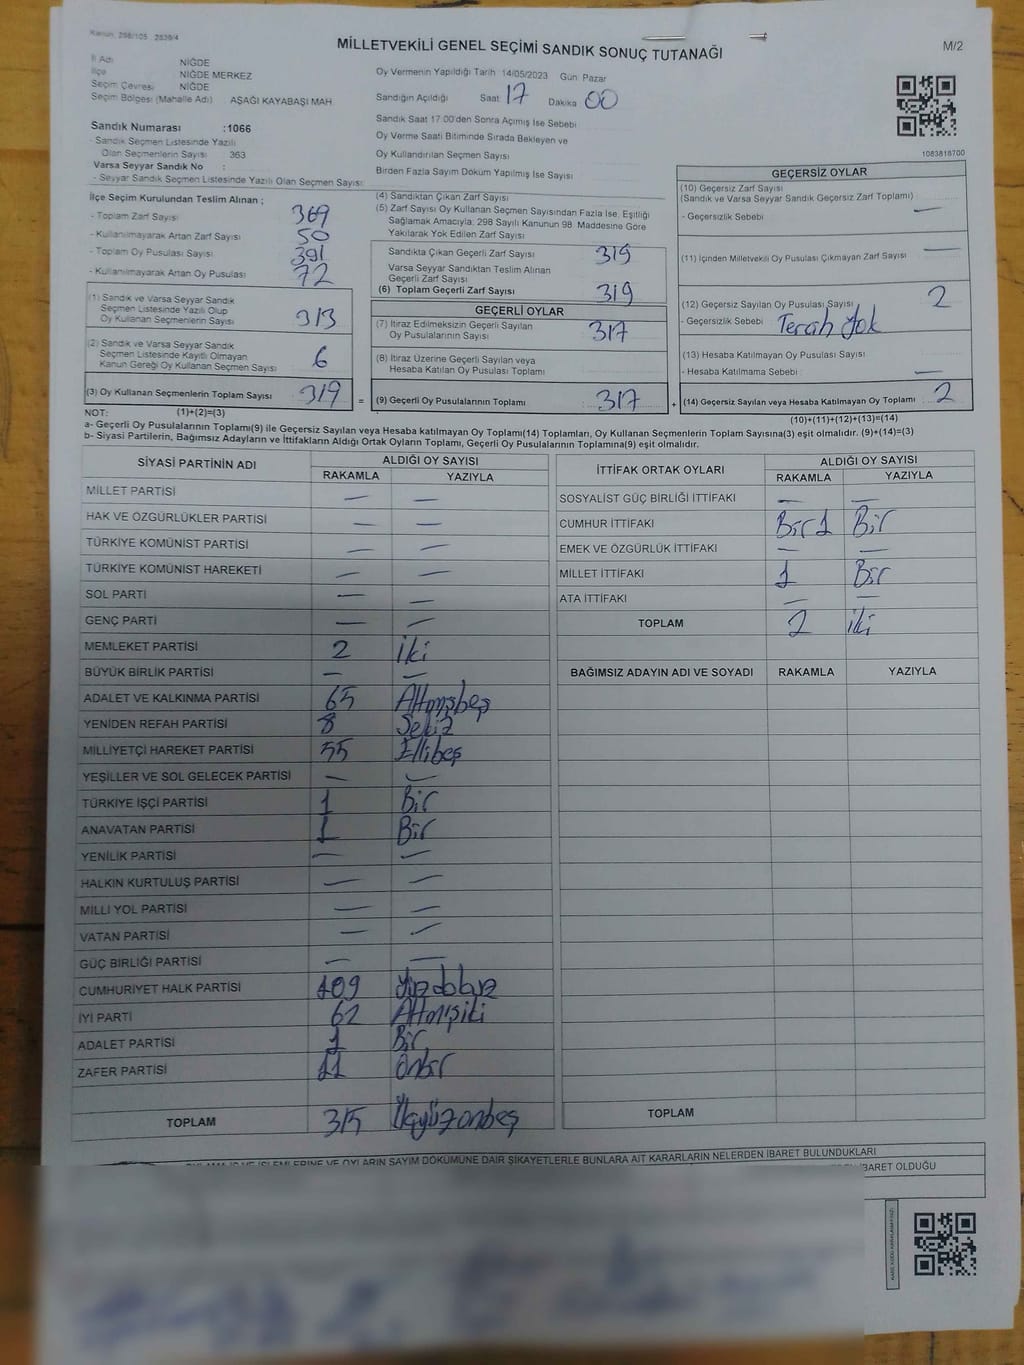 Kanun, 298/105 2839/4
MİLLETVEKİLİ GENEL SEÇİMİ SANDIK SONUÇ TUTANAĞI
M/2
İl Adı NİĞDE
İlçe NİĞDE MERKEZ
Seçim Çevresi NİĞDE
Seçim Bölgesi (Mahalle Adı) AŞAĞI KAYABAŞI MAH.
Oy Vermenin Yapıldığı Tarih 14/05/2023 Gün: Pazar
Sandığın Açıldığı Saat 17 Dakika 00
Sandık Saat 17:00'den Sonra Açımış İse Sebebi
Oy Verme Saati Bitiminde Sırada Bekleyen ve
Oy Kullandırılan Seçmen Sayısı
Birden Fazla Sayım Döküm Yapılmış İse Sayısı
1083818700
Sandık Numarası :1066
- Sandık Seçmen Listesinde Yazılı
Olan Seçmenlerin Sayısı 363
Varsa Seyyar Sandık No :
- Seyyar Sandık Seçmen Listesinde Yazılı Olan Seçmen Sayısı:
İlçe Seçim Kurulundan Teslim Alınan ;
- Toplam Zarf Sayısı 369
- Kullanılmayarak Artan Zarf Sayısı 50
- Toplam Oy Pusulası Sayısı 391
- Kullanılmayarak Artan Oy Pusulası 72
(1) Sandık ve Varsa Seyyar Sandık
Seçmen Listesinde Yazılı Olup
Oy Kullanan Seçmenlerin Sayısı 313
(2) Sandık ve Varsa Seyyar Sandık
Seçmen Listesinde Kayıtlı Olmayan
Kanun Gereği Oy Kullanan Seçmen Sayısı 6
(3) Oy Kullanan Seçmenlerin Toplam Sayısı 319 =
(4) Sandıktan Çıkan Zarf Sayısı
(5) Zarf Sayısı Oy Kullanan Seçmen Sayısından Fazla İse, Eşitliği
Sağlamak Amacıyla; 298 Sayılı Kanunun 98. Maddesine Göre
Yakılarak Yok Edilen Zarf Sayısı
Sandıkta Çıkan Geçerli Zarf Sayısı 319
Varsa Seyyar Sandıktan Teslim Alınan
Geçerli Zarf Sayısı
(6) Toplam Geçerli Zarf Sayısı 319
GEÇERLİ OYLAR
(7) İtiraz Edilmeksizin Geçerli Sayılan
Oy Pusulalarının Sayısı 317
(8) İtiraz Üzerine Geçerli Sayılan veya
Hesaba Katılan Oy Pusulası Toplamı
(9) Geçerli Oy Pusulalarının Toplamı 317 +
GEÇERSİZ OYLAR
(10) Geçersiz Zarf Sayısı
(Sandık ve Varsa Seyyar Sandık Geçersiz Zarf Toplamı)
- Geçersizlik Sebebi —
(11) İçinden Milletvekili Oy Pusulası Çıkmayan Zarf Sayısı —
(12) Geçersiz Sayılan Oy Pusulası Sayısı 2
- Geçersizlik Sebebi Tercih Yok
(13) Hesaba Katılmayan Oy Pusulası Sayısı
- Hesaba Katılmama Sebebi —
(14) Geçersiz Sayılan veya Hesaba Katılmayan Oy Toplamı 2
NOT: (1)+(2)=(3) (10)+(11)+(12)+(13)=(14)
a- Geçerli Oy Pusulalarının Toplamı(9) ile Geçersiz Sayılan veya Hesaba katılmayan Oy Toplamı(14) Toplamları, Oy Kullanan Seçmenlerin Toplam Sayısına(3) eşit olmalıdır. (9)+(14)=(3)
b- Siyasi Partilerin, Bağımsız Adayların ve İttifakların Aldığı Ortak Oyların Toplamı, Geçerli Oy Pusulalarının Toplamına(9) eşit olmalıdır.
SİYASİ PARTİNİN ADI ALDIĞI OY SAYISI
RAKAMLA YAZIYLA
MİLLET PARTİSİ — —
HAK VE ÖZGÜRLÜKLER PARTİSİ — —
TÜRKİYE KOMÜNİST PARTİSİ — —
TÜRKİYE KOMÜNİST HAREKETİ — —
SOL PARTİ — —
GENÇ PARTİ — —
MEMLEKET PARTİSİ 2 iki
BÜYÜK BİRLİK PARTİSİ — —
ADALET VE KALKINMA PARTİSİ 65 Altmışbeş
YENİDEN REFAH PARTİSİ 8 Sekiz
MİLLİYETÇİ HAREKET PARTİSİ 55 Ellibeş
YEŞİLLER VE SOL GELECEK PARTİSİ — —
TÜRKİYE İŞÇİ PARTİSİ 1 Bir
ANAVATAN PARTİSİ 1 Bir
YENİLİK PARTİSİ — —
HALKIN KURTULUŞ PARTİSİ — —
MİLLİ YOL PARTİSİ — —
VATAN PARTİSİ — —
GÜÇ BİRLİĞİ PARTİSİ — —
CUMHURİYET HALK PARTİSİ 109 Yüzdokuz
İYİ PARTİ 62 Altmışiki
ADALET PARTİSİ 1 Bir
ZAFER PARTİSİ 11 Onbir
TOPLAM 315 Üçyüzonbeş
İTTİFAK ORTAK OYLARI ALDIĞI OY SAYISI
RAKAMLA YAZIYLA
SOSYALİST GÜÇ BİRLİĞİ İTTİFAKI — —
CUMHUR İTTİFAKI Bir 1 Bir
EMEK VE ÖZGÜRLÜK İTTİFAKI — —
MİLLET İTTİFAKI 1 Bir
ATA İTTİFAKI — —
TOPLAM 2 iki
BAĞIMSIZ ADAYIN ADI VE SOYADI RAKAMLA YAZIYLA
TOPLAM
OYLAMA İŞ VE İŞLEMLERİNE VE OYLARIN SAYIM DÖKÜMÜNE DAİR ŞİKAYETLERLE BUNLARA AİT KARARLARIN NELERDEN İBARET BULUNDUKLARI
İBARET OLDUĞU